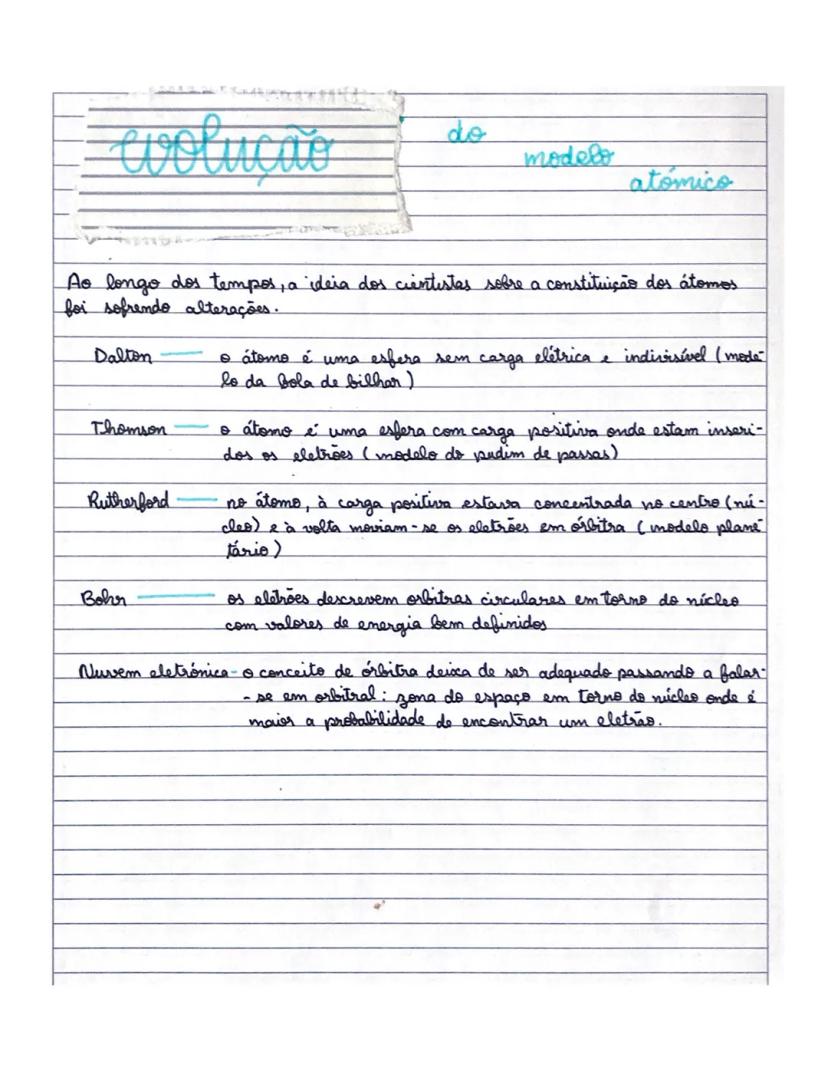 evolução do modelo atómico
Ao longo dos tempos, a ideia dos cientistas sobre a constituição dos átomos
foi sofrendo alterações.
Dalton — o átomo é uma esfera sem carga elétrica e indivisível (mode-
lo da bola de bilhar)
Thomson — o átomo é uma esfera com carga positiva onde estam inseri-
dos os eletrões (modelo do pudim de passas)
Rutherford — no átomo, à carga positiva estava concentrada no centro (nú-
cleo) e à volta moviam-se os eletrões em órbitra (modelo plane-
tário)
Bohr — os eletrões descrevem orbitras circulares em torno do núcleo
com valores de energia bem definidos
Nuvem eletrónica - o conceito de órbitra deixa de ser adequado passando a falar-
-se em orbital: zona do espaço em torno do núcleo onde é
maior a probabilidade de encontrar um eletrão.